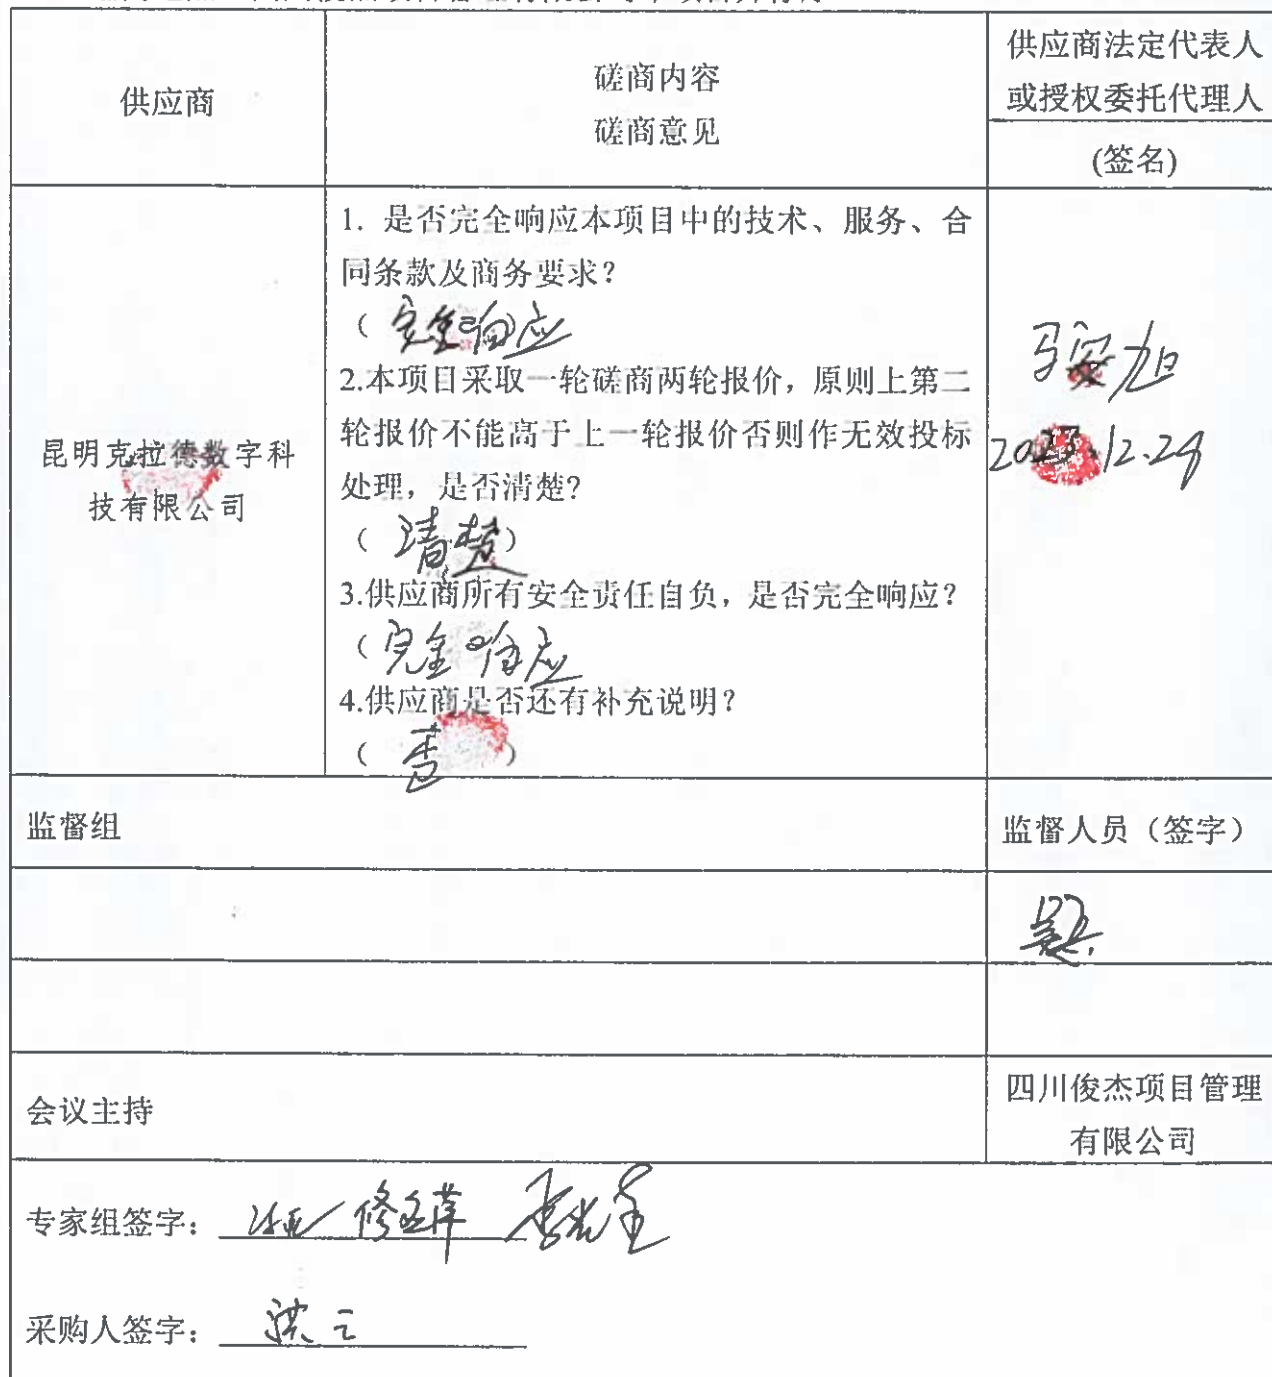 供应商
磋商内容
磋商意见
供应商法定代表人
或授权委托代理人
(签名)
昆明克拉德数字科
技有限公司
1. 是否完全响应本项目中的技术、服务、合
同条款及商务要求?
( 完全响应
2.本项目采取一轮磋商两轮报价，原则上第二
轮报价不能高于上一轮报价否则作无效投标
处理，是否清楚?
( 清楚 )
3.供应商所有安全责任自负，是否完全响应?
( 完全响应
4.供应商是否还有补充说明?
( 否 )
马安旭
监督组
监督人员（签字）
会议主持
四川俊杰项目管理
有限公司
专家组签字：
采购人签字：